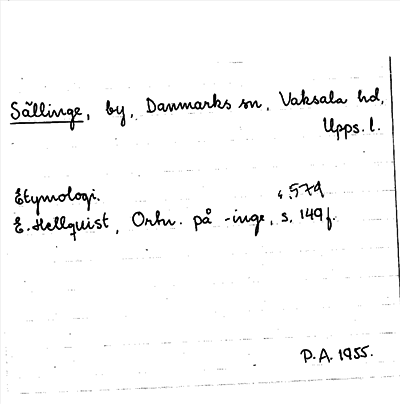 Sällinge, by, Danmarks sn, Vaksala hd,
Upps. l.
Etymologi.
s. 579
E. Hellquist, Ortn. på -inge, s. 149 f.
P.A. 1955.